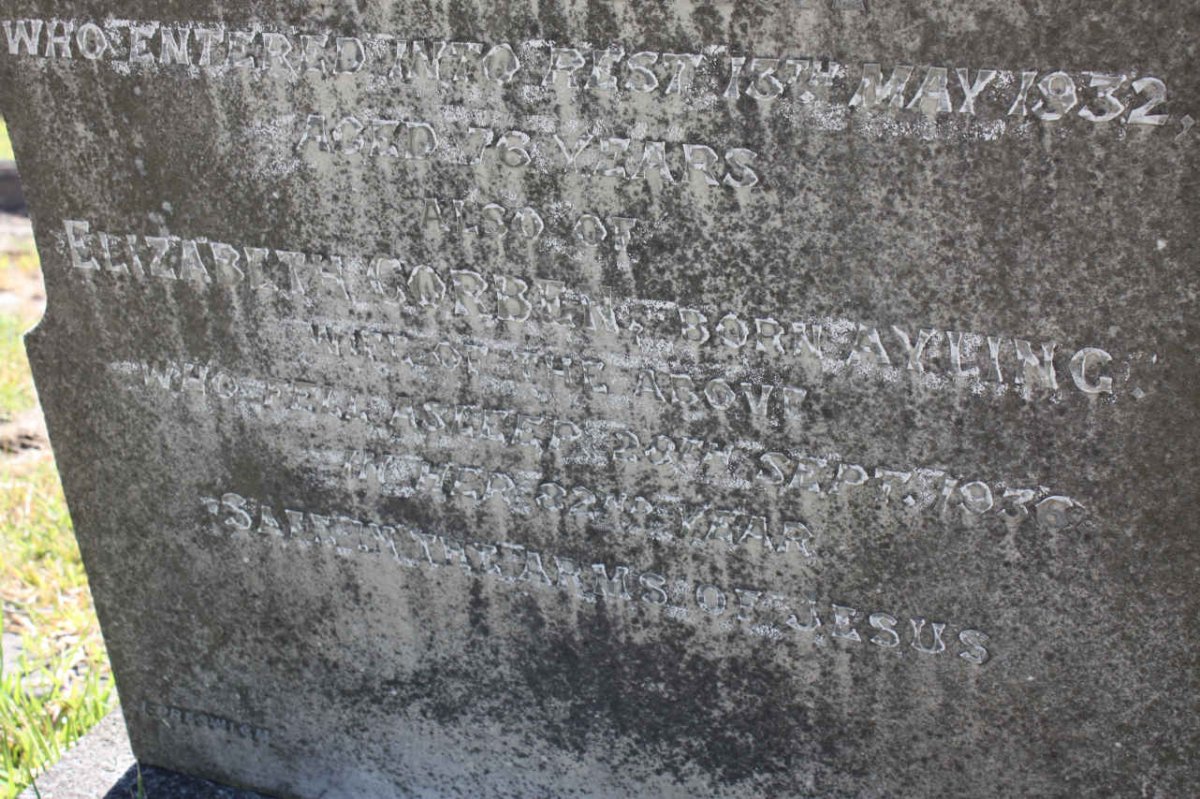 WHO ENTERED INTO REST 13TH MAY 1932,
AGED 76 YEARS
ALSO OF
ELIZABETH CORBEN, BORN AYLING
WIFE OF THE ABOVE
WHO FELL ASLEEP SEPT. 1936
IN HER 82ND YEAR
"SAFE IN THE ARMS OF JESUS